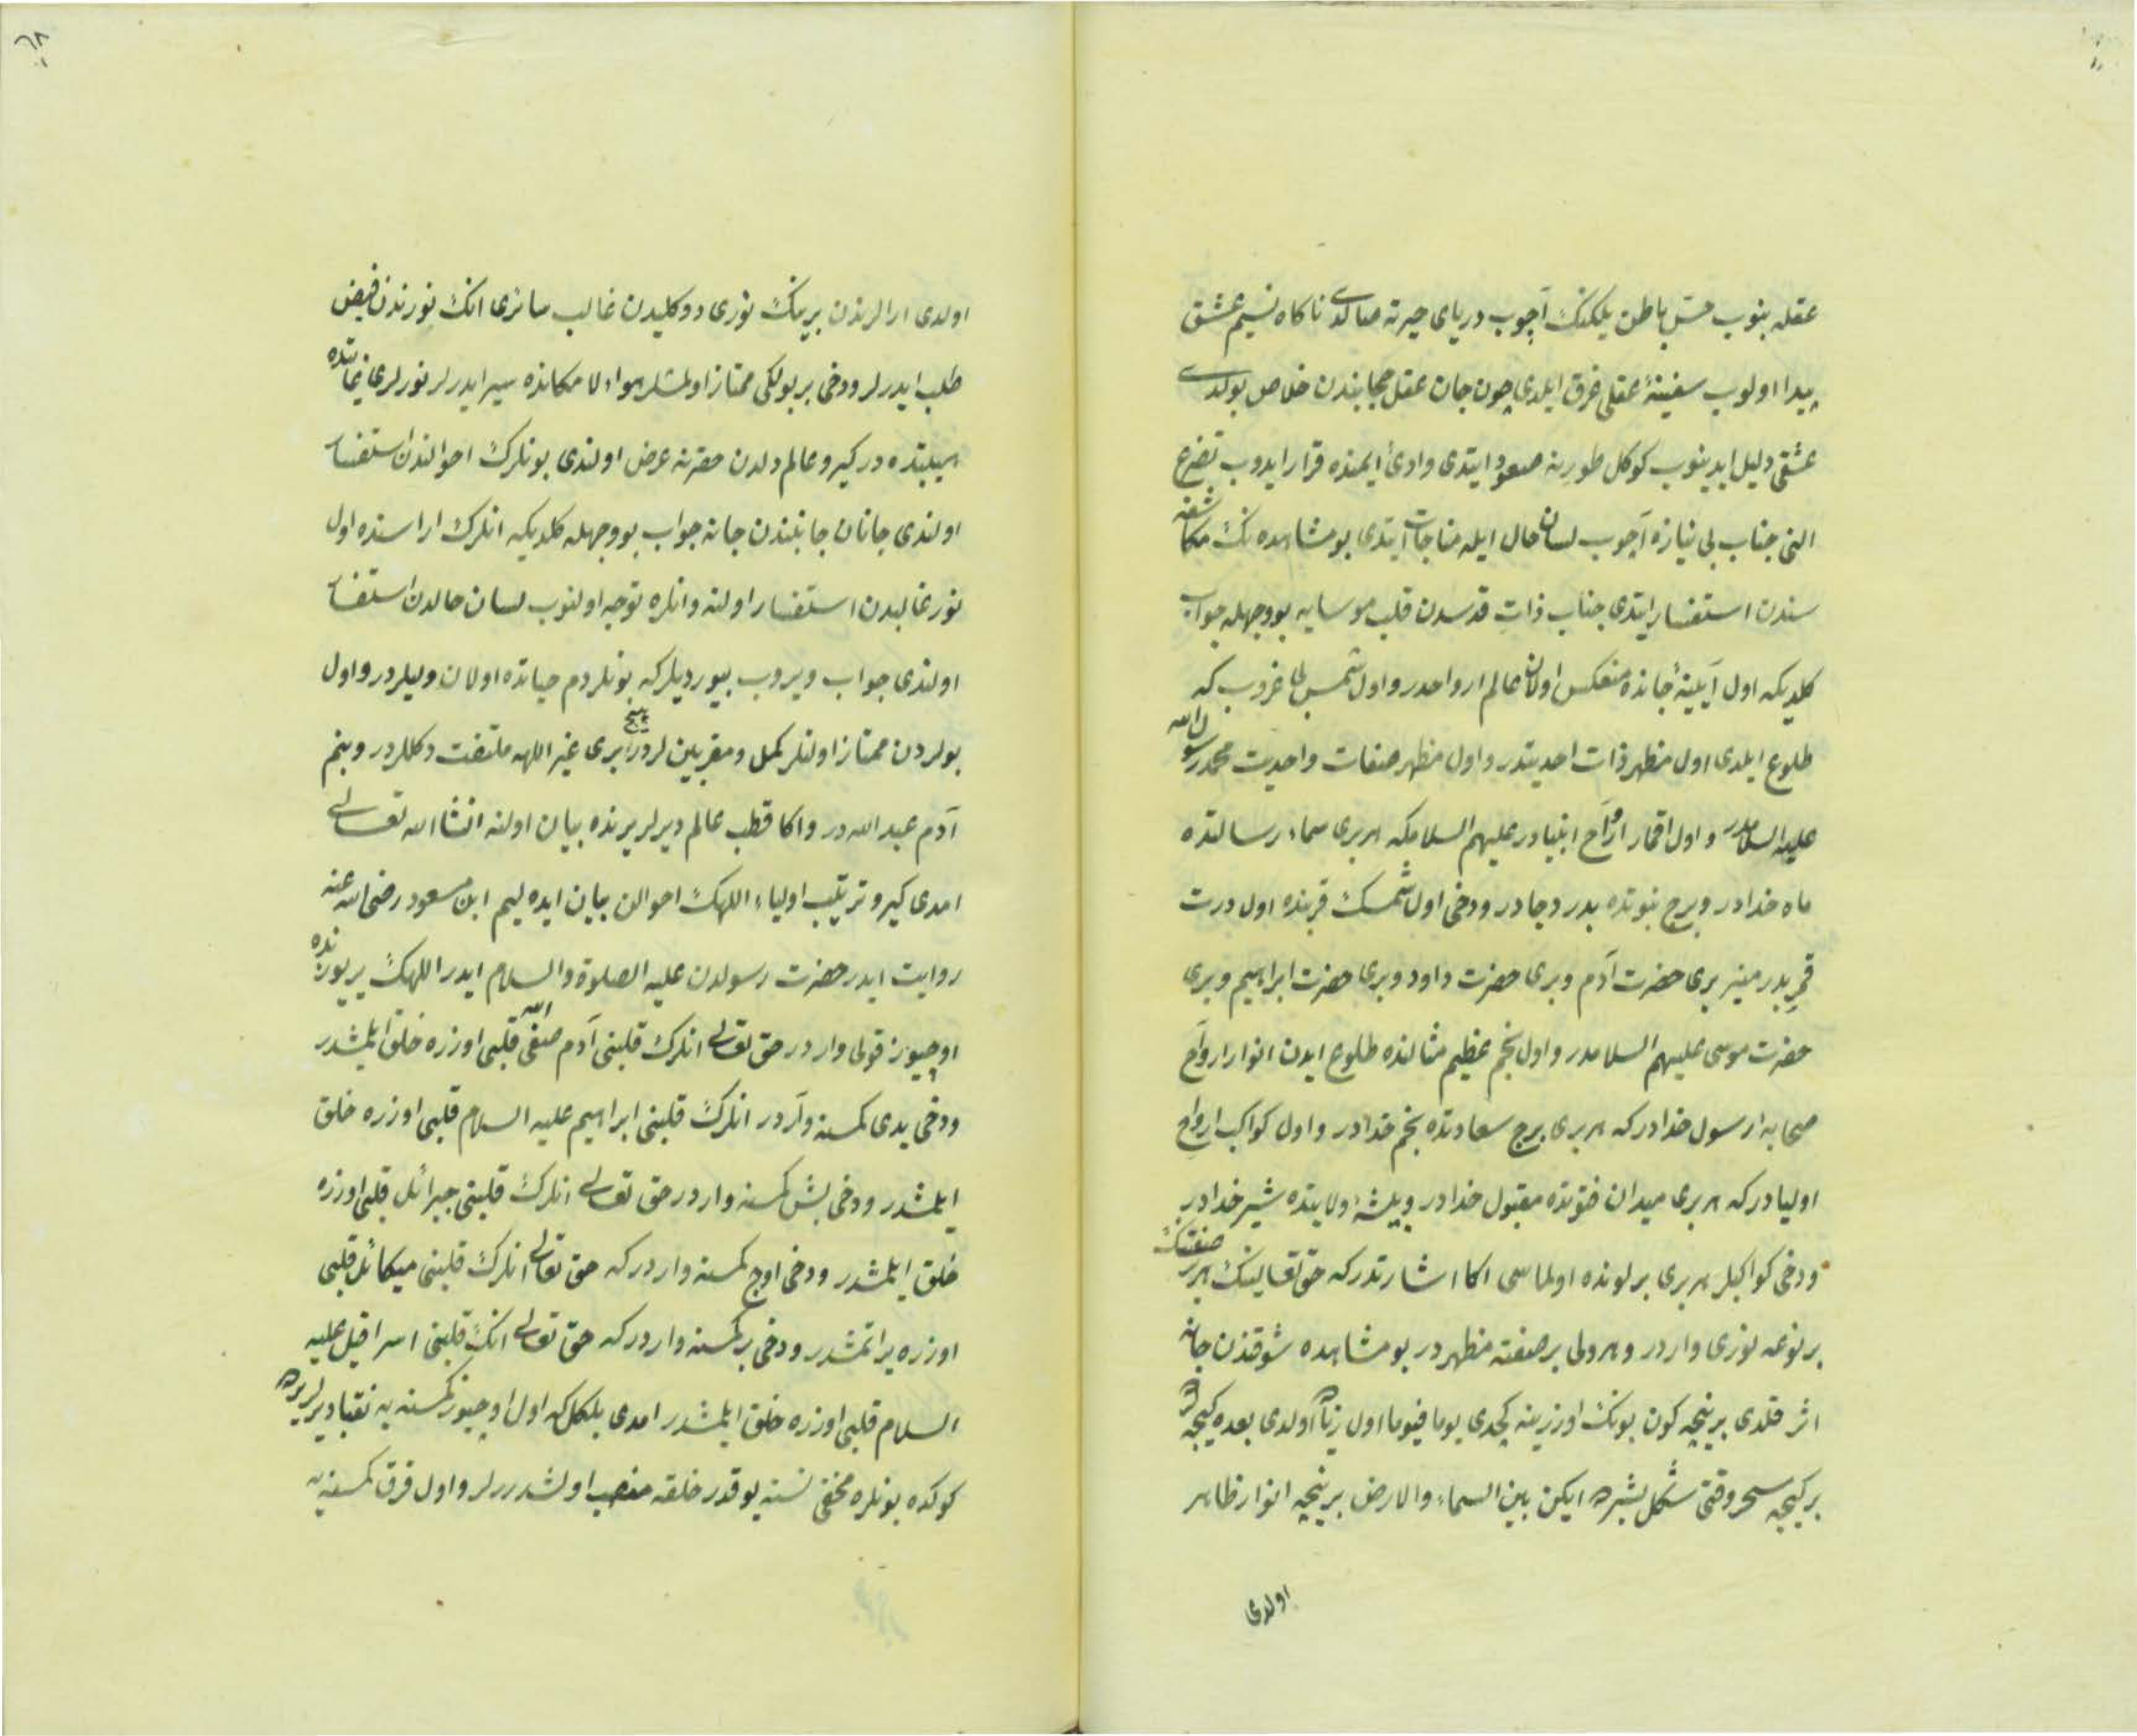 عقله بنوب حس باطن يلكنك آچوب درياى حيرته صالدى ناكاه نسيم عشق
پيدا اولوب سفينهٔ عقلى غرق ايلدى چون جان عقل حجابندن خلاص بولدى
عشقى دليل ايدينوب كوكل طورينه صعود ايتدى وادئ ايمنده قرار ايدوب تضرع
الني جناب بى نيازه آچوب لسان حال ايله مناجات ايتدى بو مشاهده نك مكاشفه
سندن استفسار ايتدى جناب ذات قدسدن قلب موسايه بو وجهله جواب
كلديكه اول آيينهٔ جانده منعكس اولان عالم ارواحدر و اول شمس بى غروب كه
طلوع ايلدى اول مظهر ذات احديتدر و اول مظهر صفات واحديت محمد رسول الله
عليه السلامدر و اول اقمار ارواح انبيادر عليهم السلامكه هر برى سماء رسالتده
ماه خدادر و برج نبوتده بدر دجادر ودخى اول شمسك قربنده اول درت
قمر بدر منير برى حضرت آدم و برى حضرت داود و برى حضرت ابراهيم و برى
حضرت موسى عليهم السلامدر و اول نجم عظيم مثالنده طلوع ايدن انوار ارواح
صحابهٔ رسول خدادر كه هر برى برج سعادتده نجم خدادر و اول كواكب ارواح
اوليادر كه هر برى ميدان فتوتده مقبول خدادر و بيشهٔ ولايتده شير خدادر
ودخى كواكبلر هر برى بر لونده اولماسى اكا اشارتدر كه حق تعالينك هر بر صفتنك
بر نوعه نورى واردر و هر ولى بر صفته مظهردر بو مشاهده شوقندن جانه
اثر قلدى بر نيچه كون بونك اوزرينه كچدى يوما فيوما اول زياده اولدى بعده كيجه
بر كيجه سحر وقتى شكل بشرده ايكن بين السماء والارض بر نيچه انوار ظاهر
اولدى
٦٨
اولدى ارالرندن برينك نورى دوكليدن غالب سائرى انك نورندن فيض
طلب ايدرلر ودخى بر بولكى ممتاز اولمشلر هواده لا مكانده سير ايدرلر نورلرى غايتده
هيبتده در كيرو عالم دلدن حضرته عرض اولندى بونلرك احوالندن استفسار
اولندى جانان جانبندن جانه جواب بو وجهله كلديكه انلرك اراسنده اول
نور غالبدن استفسار اولنه و انلره توجه اولنوب لسان حالدن استفسار
اولندى جواب ويروب بيورديلر كه بونلر دم حياتده اولان وليلردر و اول
بولردن ممتاز اولنلر كمل و مقربين لردر هيچ برى غير اللهه ملتفت دكللردر و بنم
آدم عبد الله در و اكا قطب عالم ديرلر يرنده بيان اولنه انشاالله تعالى
امدى كيرو ترتيب اولياء اللهك احوالن بيان ايده ليم ابن مسعود رضى الله عنه
روايت ايدر حضرت رسولدن عليه الصلوة والسلام ايدر اللهك ير يوزنده
اوچيوز قولى واردر حق تعالى انلرك قلبنى آدم صفى الله قلبى اوزره خلق ايلمشدر
ودخى يدى كمسنه واردر انلرك قلبنى ابراهيم عليه السلام قلبى اوزره خلق
ايلمشدر ودخى بش كمسنه واردر حق تعالى انلرك قلبنى جبرائل قلبى اوزره
خلق ايلمشدر ودخى اوچ كمسنه واردر كه حق تعالى انلرك قلبنى ميكائل قلبى
اوزره يراتمشدر ودخى بر كمسنه واردر كه حق تعالى انك قلبنى اسرافيل عليه
السلام قلبى اوزره خلق ايلمشدر امدى بلكل كه اول اوچيوز كمسنه يه نقبا ديرلر يرده
كوكده بونلره مخفى نسنه يوقدر خلقه منصب اولشدررلر و اول قرق كمسنه يه